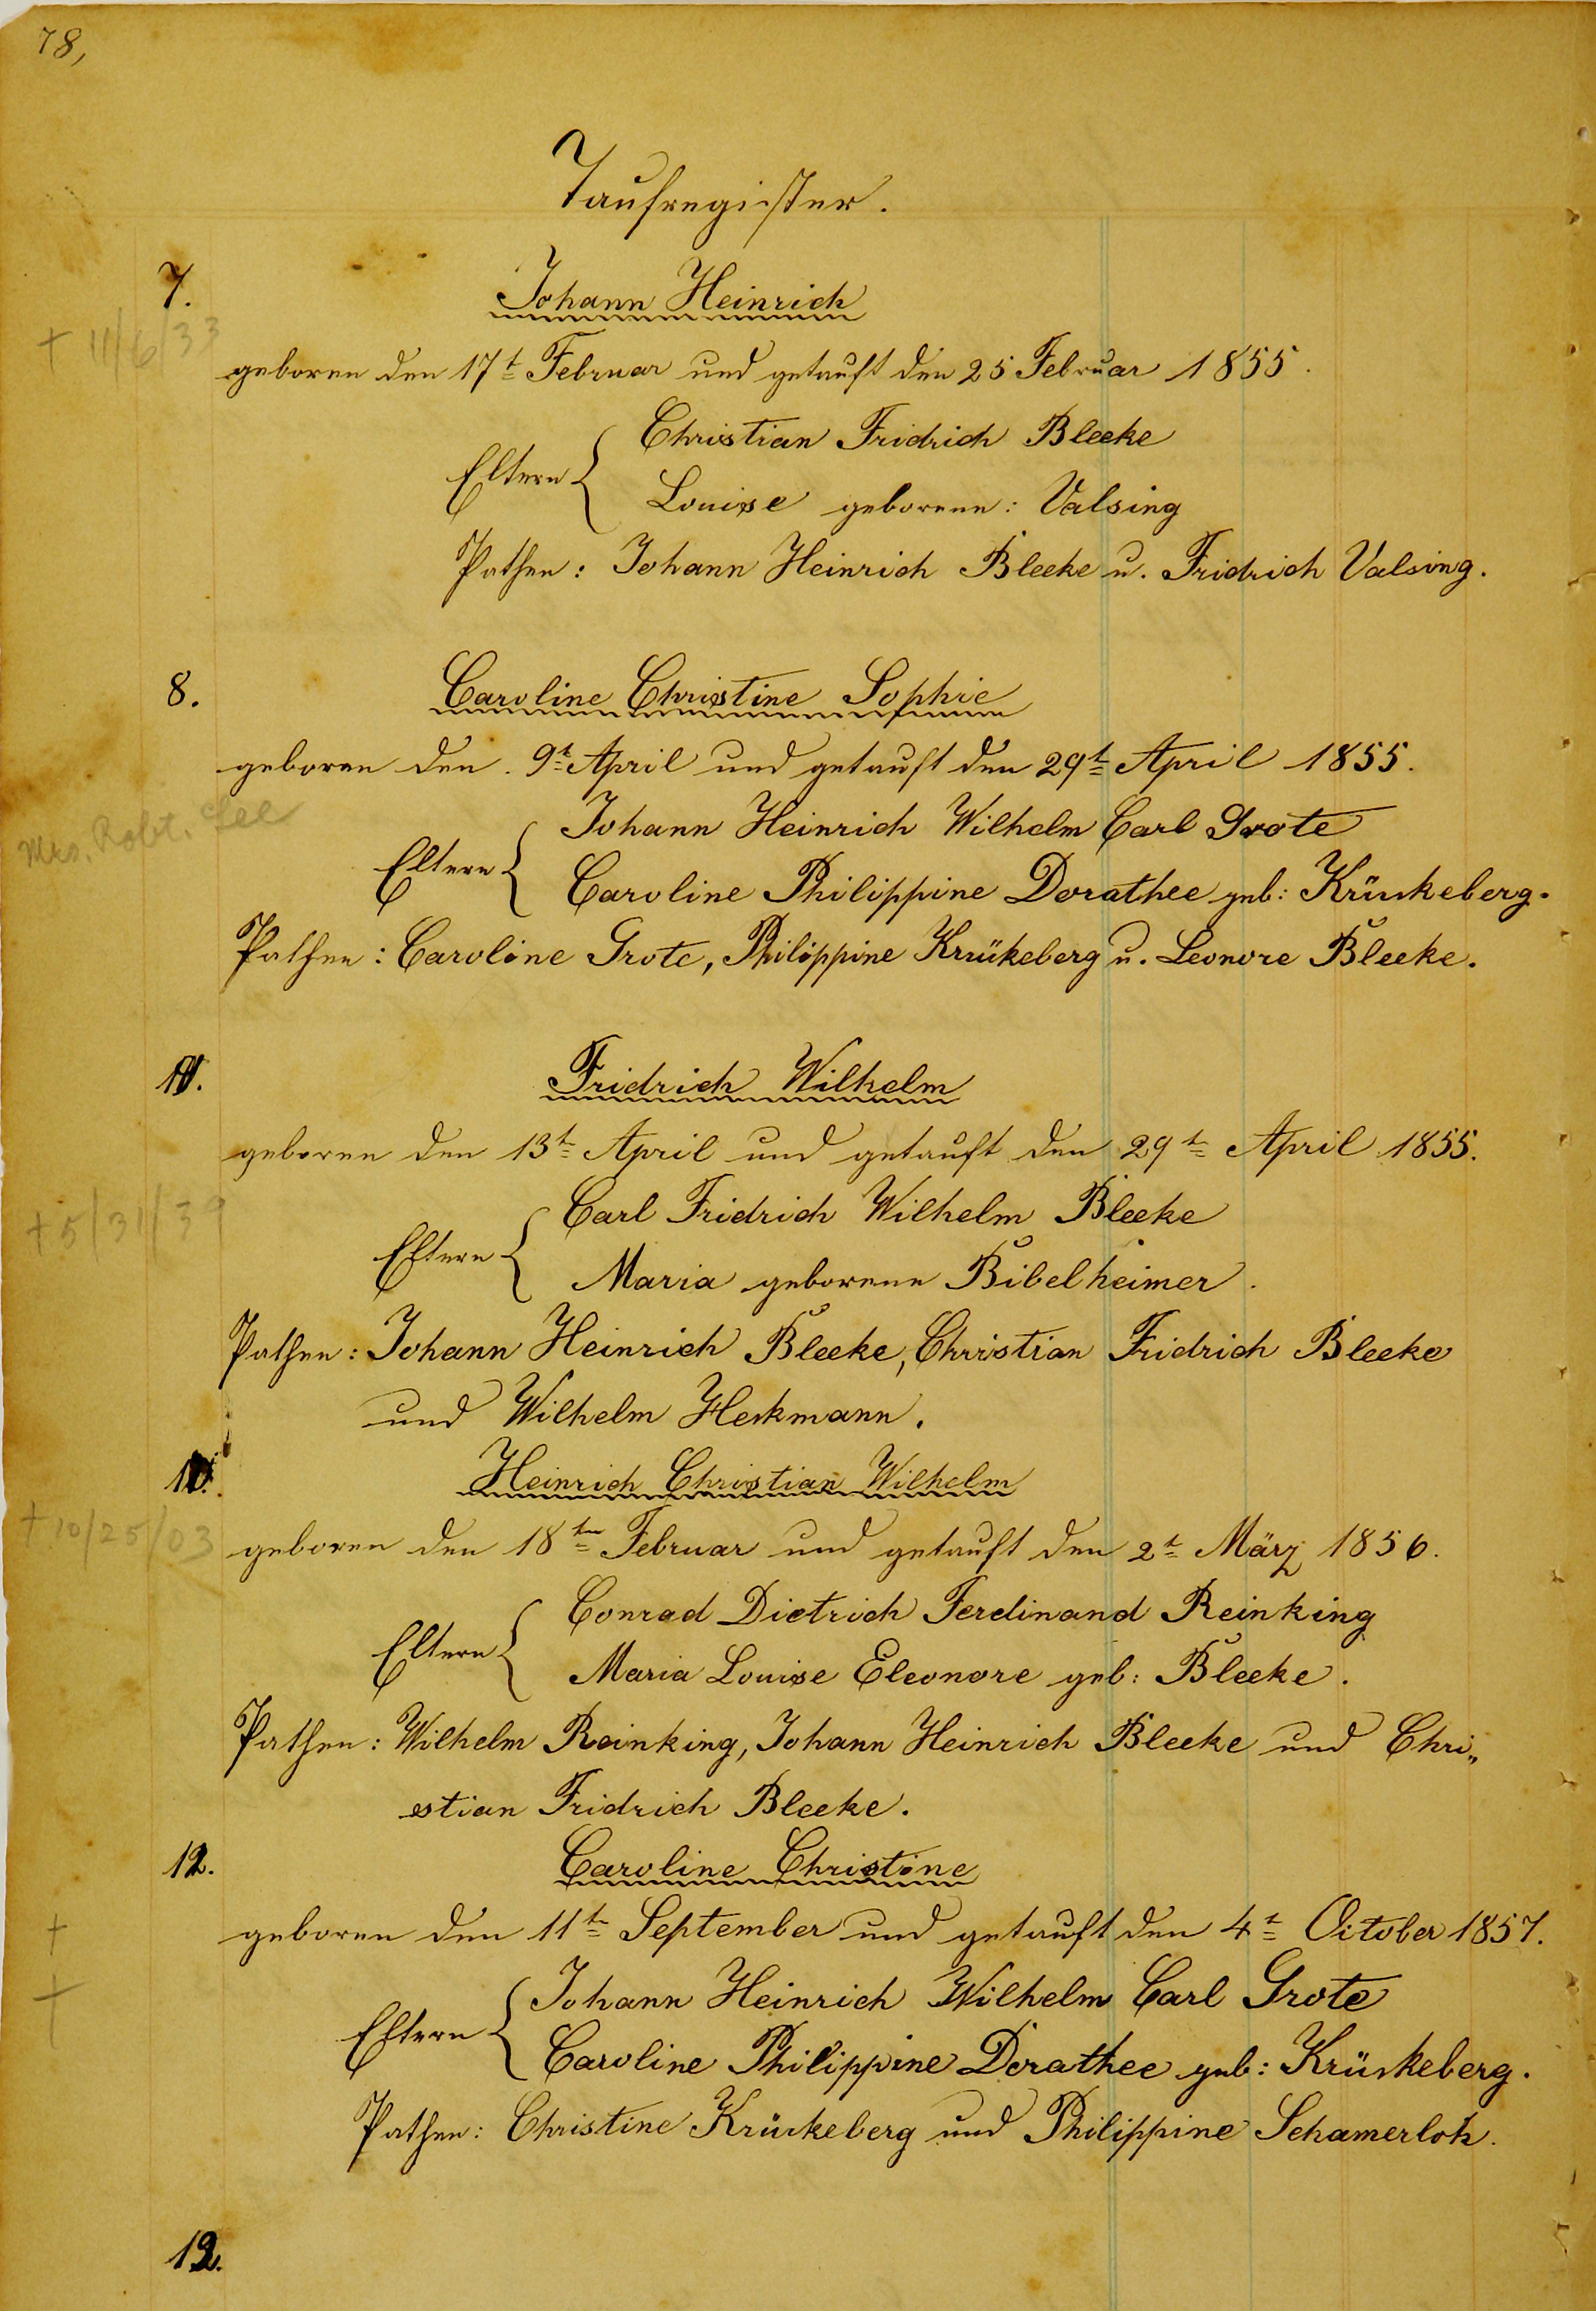 78,
Taufregister.
7.
Johann Heinrich
+ 11/6/33
geboren den 17t Februar und getauft den 25 Februar 1855.
Eltern { Christian Fridrich Bleeke
Louise geborene: Valsing
Pathen: Johann Heinrich Bleeke u. Fridrich Valsing.
8.
Caroline Christine Sophie
geboren den 9t April und getauft den 29t April 1855.
Mrs. Robt. Lee
Eltern { Johann Heinrich Wilhelm Carl Grote
Caroline Philippine Dorathee geb: Krückeberg.
Pathen: Caroline Grote, Philippine Krükeberg u. Leonore Bleeke.
Fridrich Wilhelm
geboren den 13t April und getauft den 29t April 1855.
+ 5/31/39
Eltern { Carl Fridrich Wilhelm Bleeke
Maria geborene Bibelheimer.
Pathen: Johann Heinrich Bleeke, Christian Fridrich Bleeke
und Wilhelm Heckmann.
Heinrich Christian Wilhelm
+ 10/25/03
geboren den 18ten Februar und getauft den 2t März 1856.
Eltern { Conrad Dietrich Ferdinand Reinking
Maria Louise Eleonore geb: Bleeke.
Pathen: Wilhelm Reinking, Johann Heinrich Bleeke und Chri„
stian Fridrich Bleeke.
12.
Caroline Christine
geboren den 11t September und getauft den 4t October 1857.
+
+
Eltern { Johann Heinrich Wilhelm Carl Grote
Caroline Philippine Dorathee geb: Krückeberg.
Pathen: Christine Krückeberg und Philippine Schamerloh.